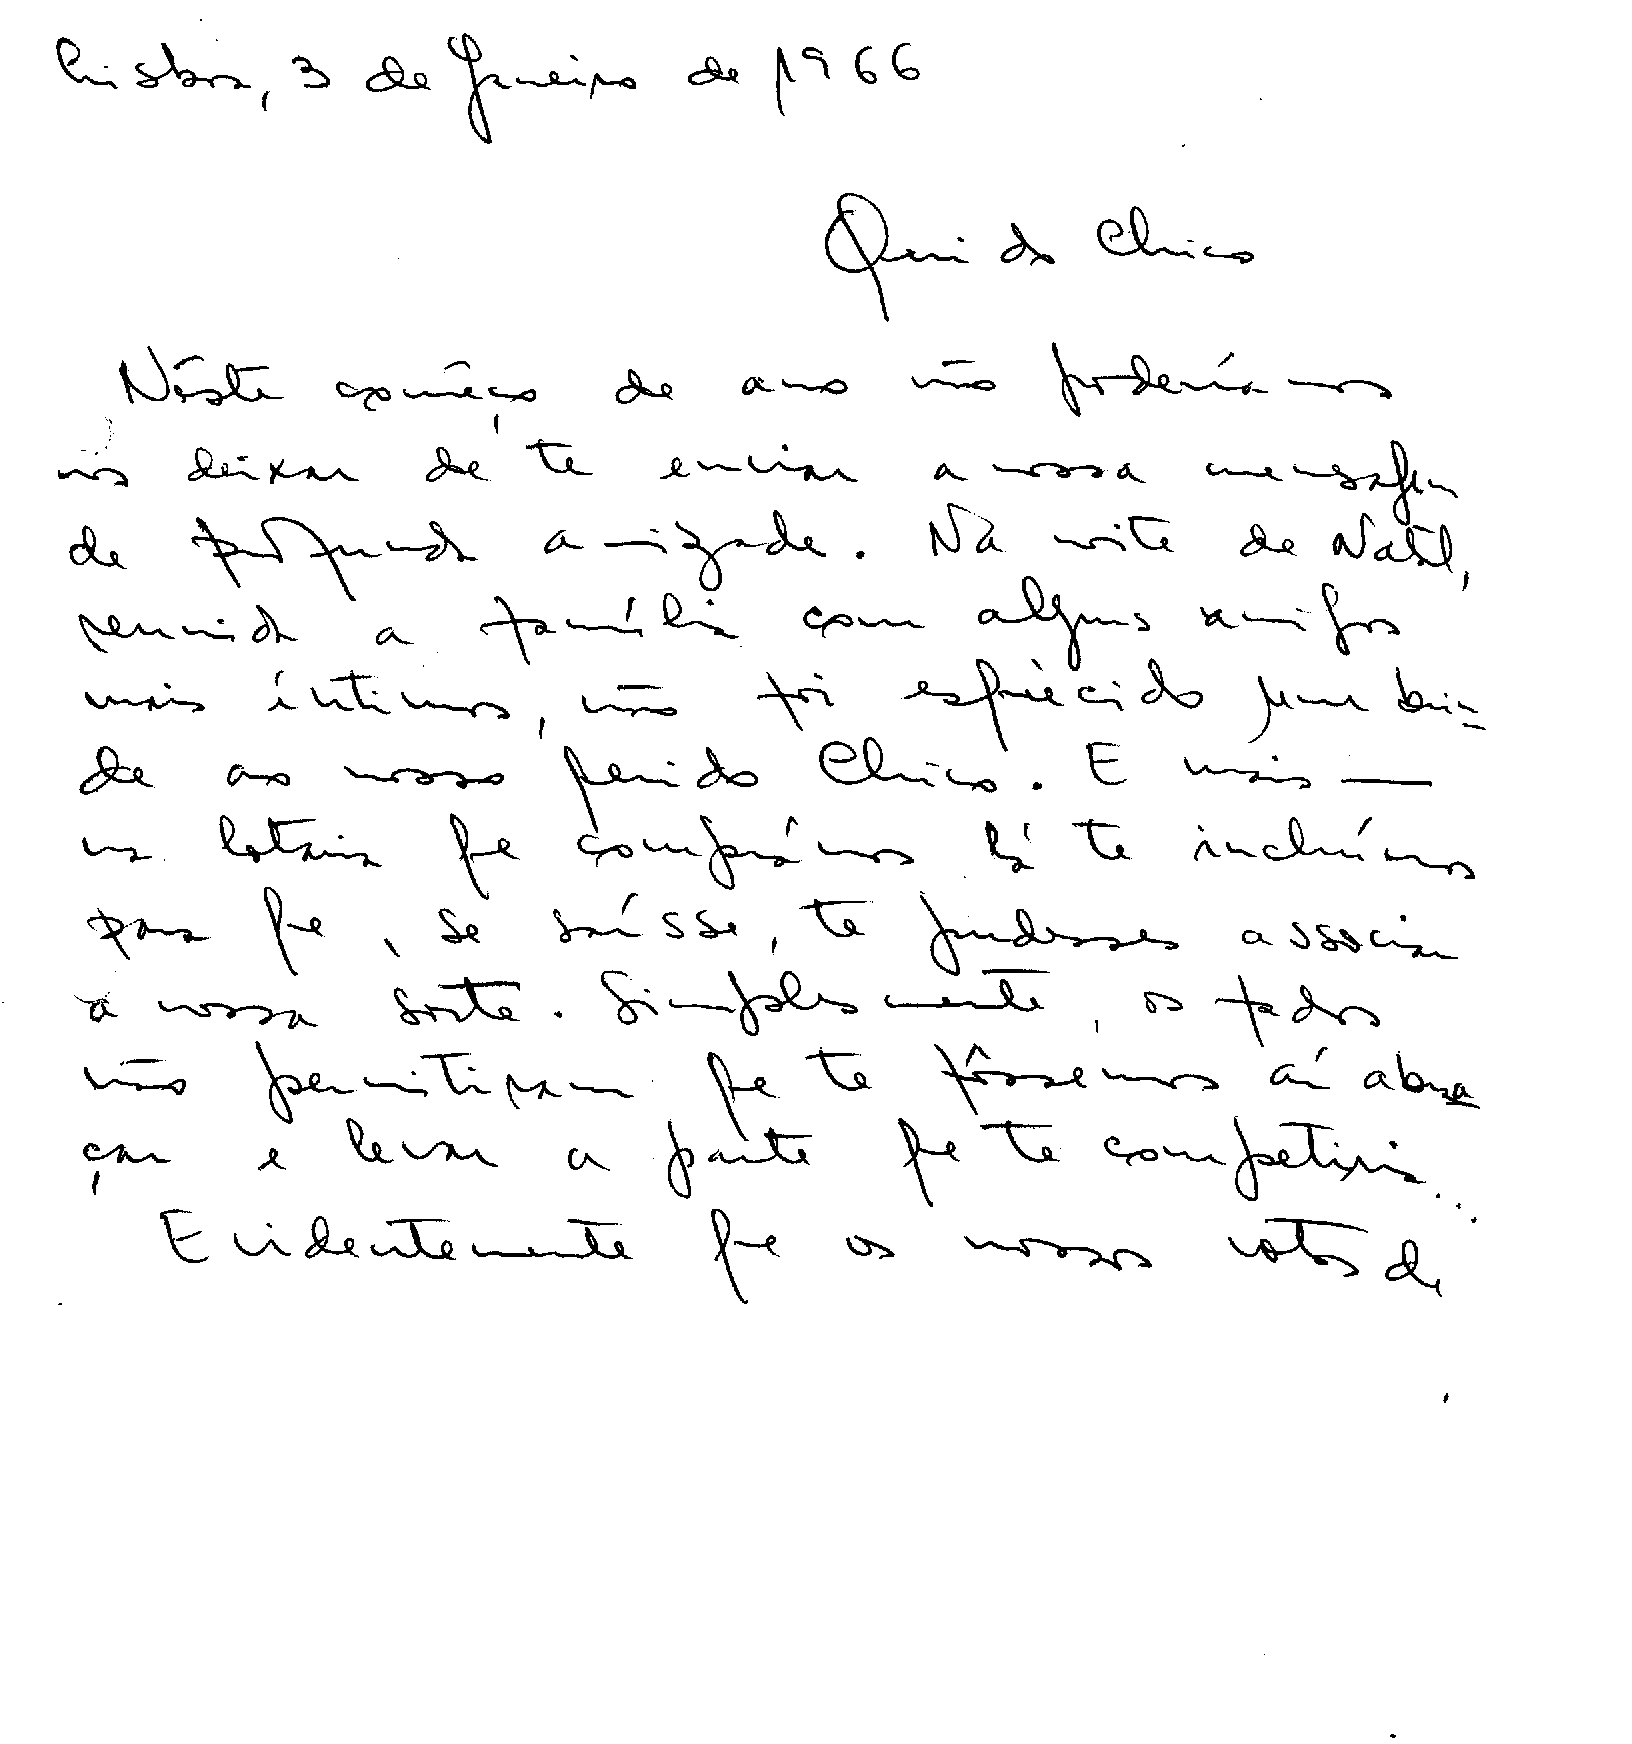 Lisboa, 3 de Janeiro de 1966
Querido Chico
Nêste comêço de ano não poderíamos
nós deixar de te enviar a nossa mensagem
de profunda amizade. Na noite de Natal,
reunida a família com alguns amigos
mais íntimos, não foi esquècido um brin-
de ao nosso querido Chico. E mais —
na lotaria que comprámos lá te incluímos
para que, se saísse, te pudesses associar
à nossa sorte. Simplesmente, os fados
não permitiram que te fôssemos aí abra
çar e levar a parte que te competiria...
Evidentemente que os nossos votos de